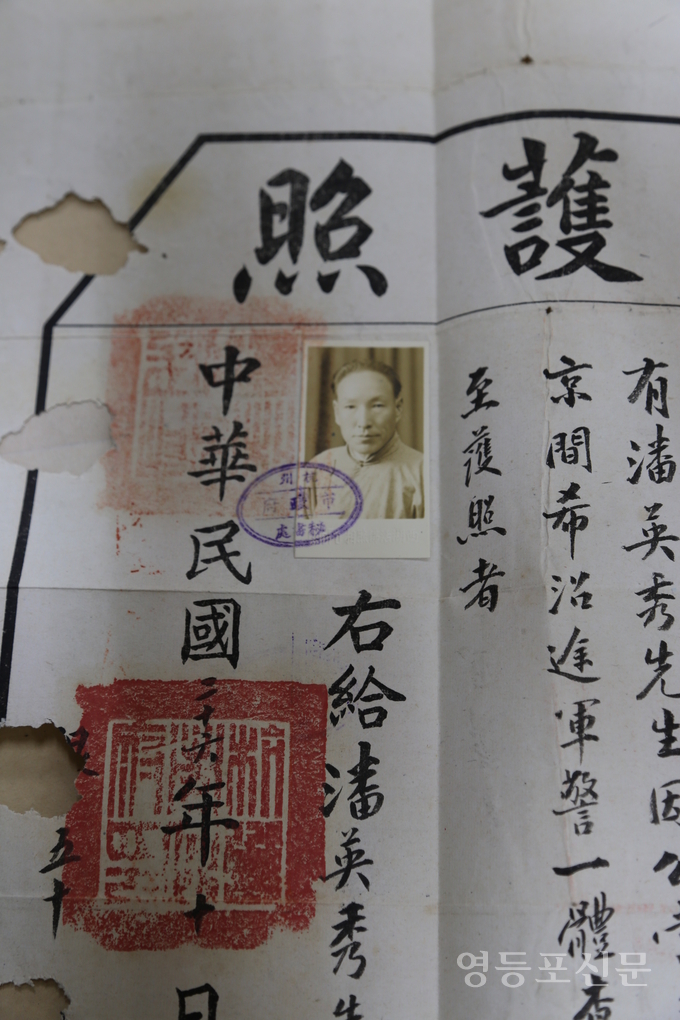 護照
有潘英秀先生因公
京間希沿途軍警一體查
至護照者
右給潘英秀先
中華民國三十六年十
日
五十
杭州
市政府
秘書處
영등포신문